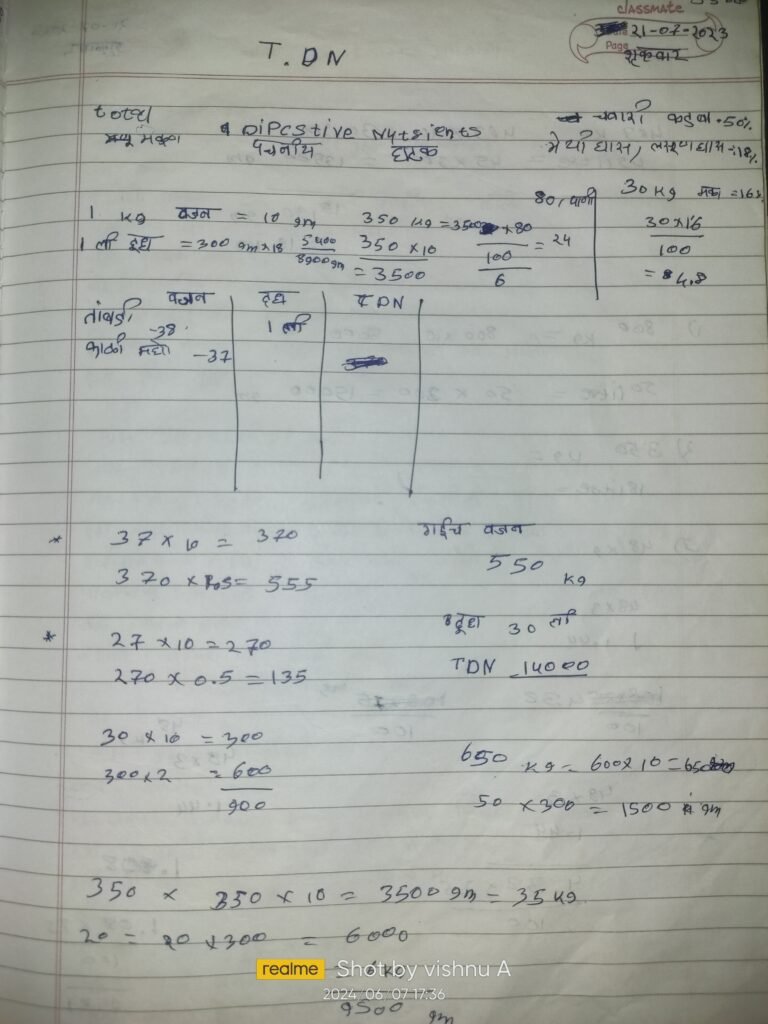 classmate
21-07-2023
Page
शुक्रवार
T.DN
total
DiPcstive Nutsients
पचनीय घटक
ज्वारी कडबा .50%
मेथी घास, लसूण घास -18%
30 kg मका = 16%
1 kg वजन = 10 gm
1 ली दूध = 300 gm x 18
5400
8900 gm
350 kg = 3500
350 x 10
= 3500
80% पाणी
x 80
100
= 24
6
30 x 16
100
= 4.8
वजन दूध TDN
तांबडी -38 1 ली
काळी -37
* 37 x 10 = 370
= 555
* 27 x 10 = 270
270 x 0.5 = 135
गाईच वजन
550 kg
दूध 30 ली
TDN 14000
30 x 10 = 300
300 x 2 = 600
900
650 kg = 600 x 10 =
50 x 300 = 1500 gm
350 x 350 x 10 = 3500 gm = 35 kg
20 = 20 x 300 = 6000
9500 gm
realme Shot by vishnu A
2024/06/07 17:36